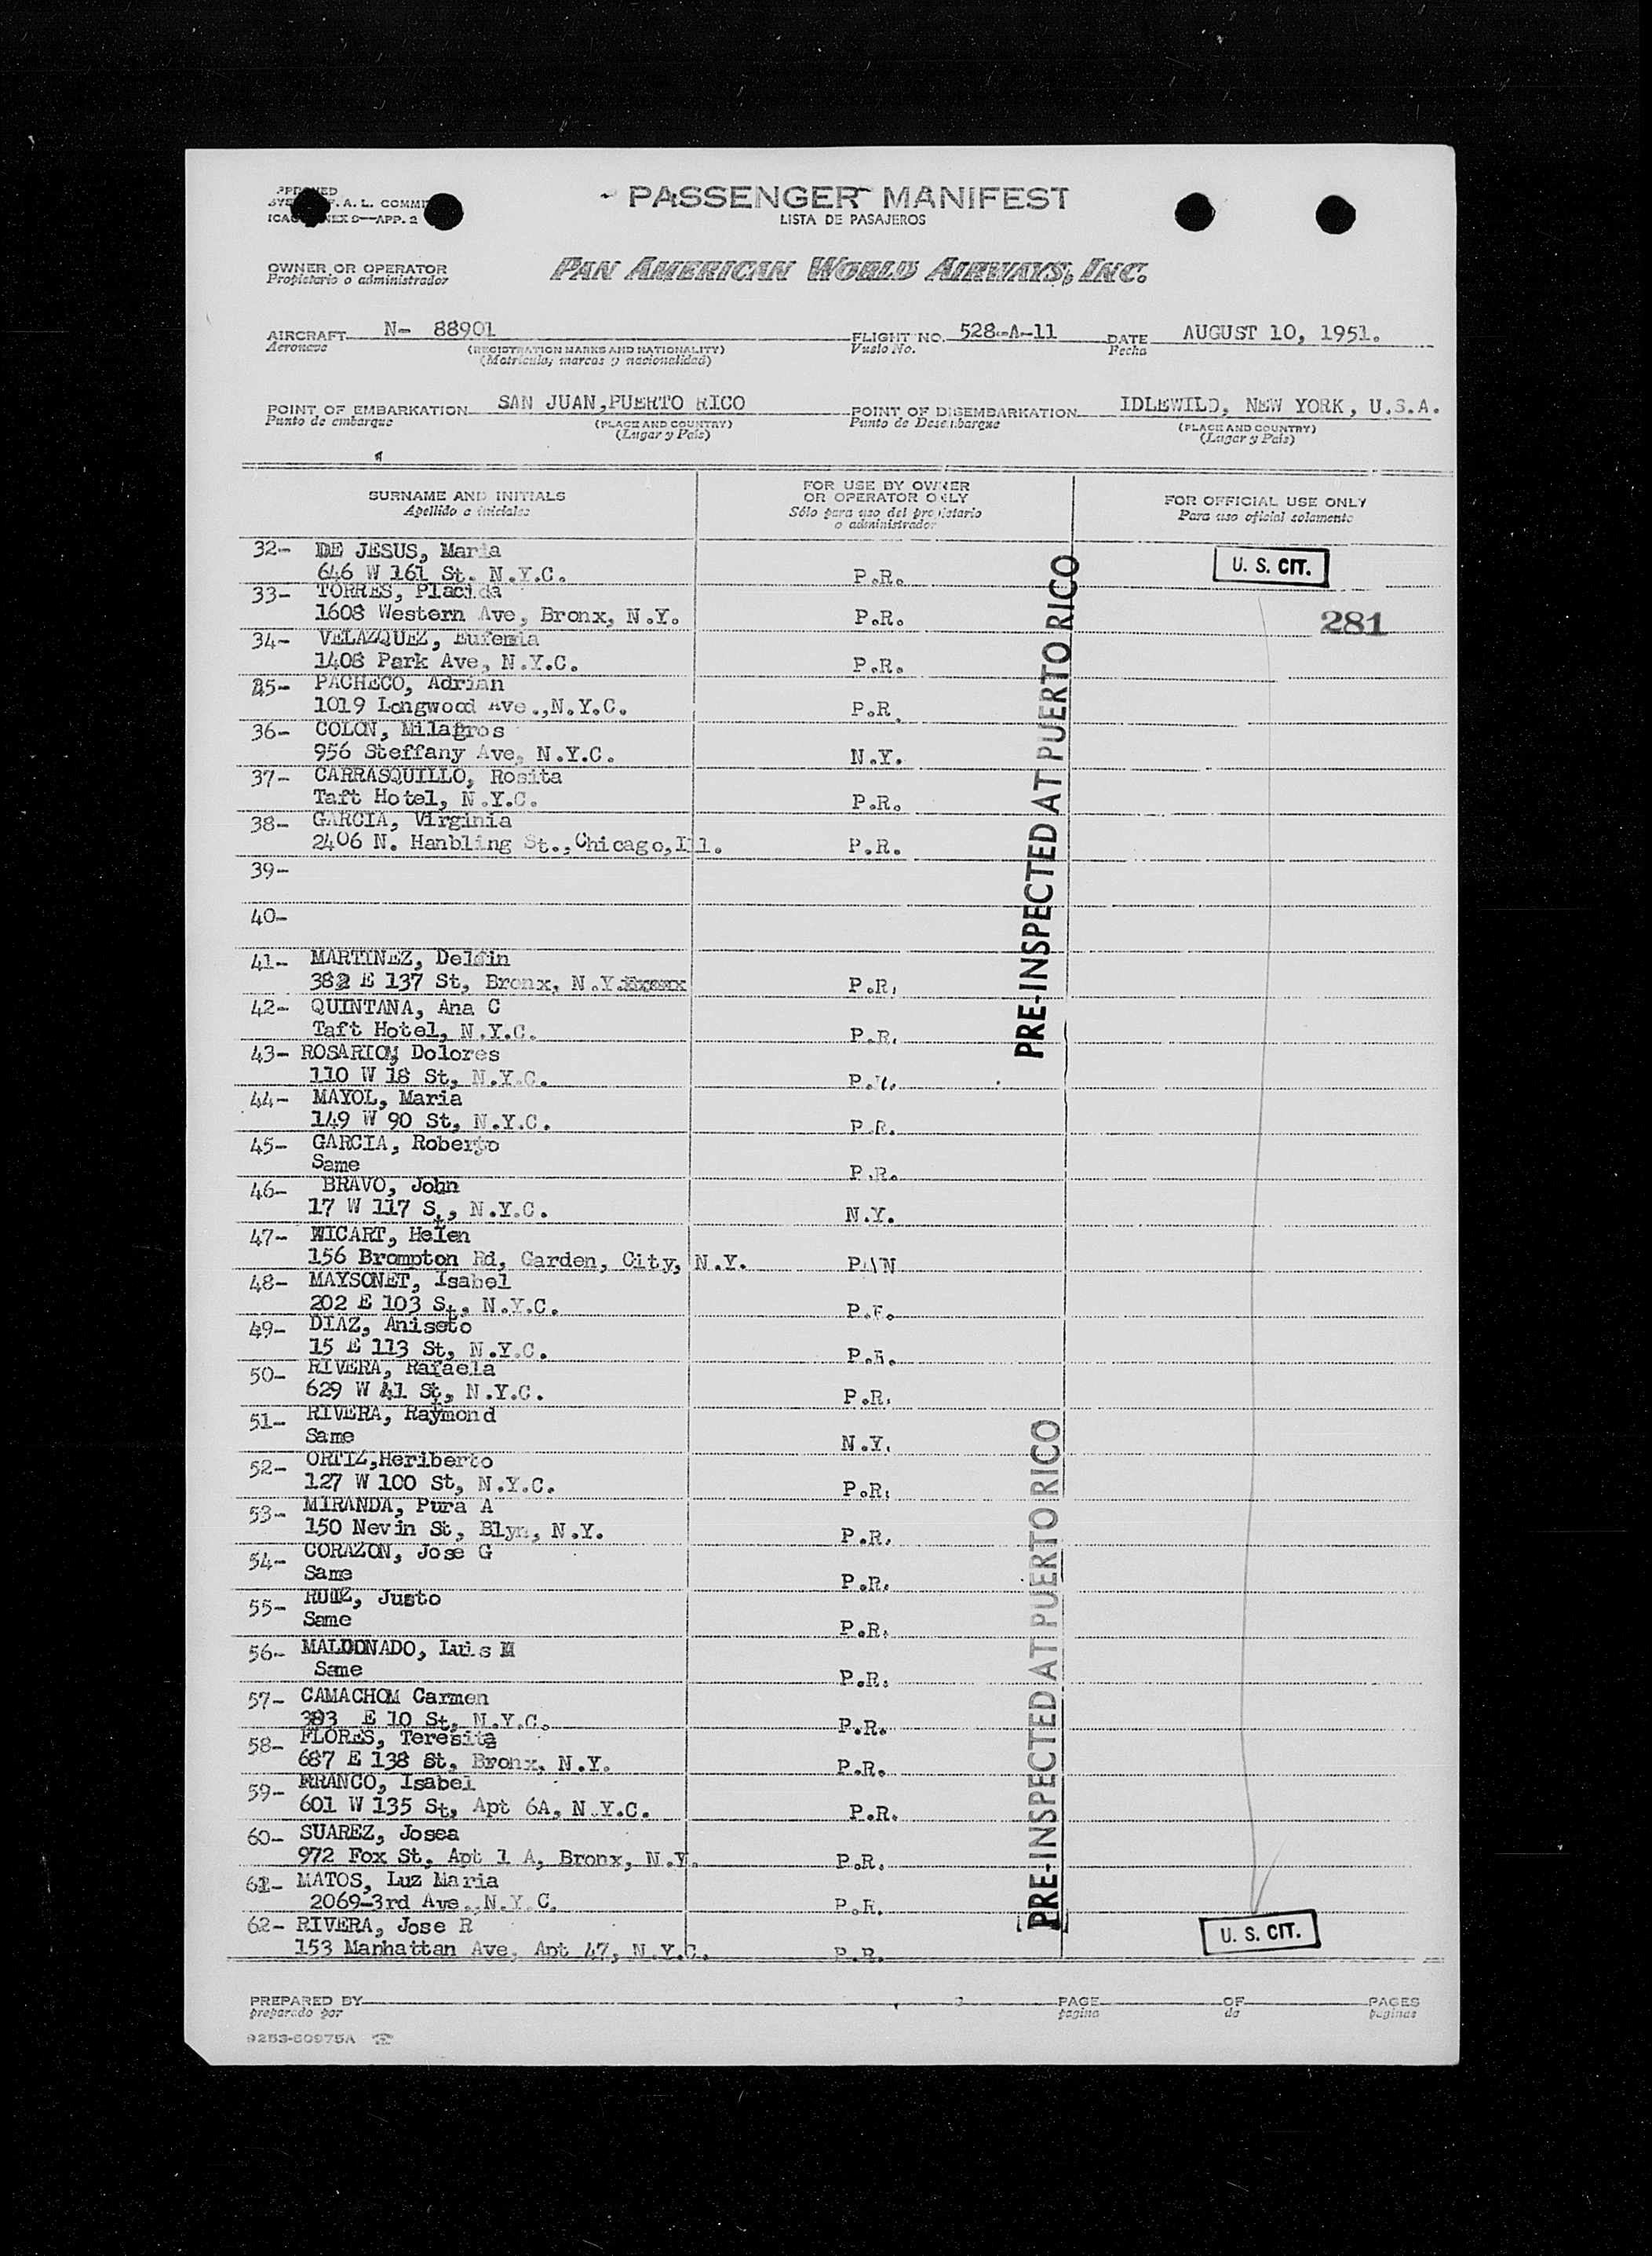 F. A. L. COMMI
APP. 2
PASSENGER MANIFEST
LISTA DE PASAJEROS
OWNER OR OPERATOR
Propietario o administrador
PAN AMERICAN WORLD AIRWAYS, INC.
AIRCRAFT N- 88901 FLIGHT NO. 528-A-11 DATE AUGUST 10, 1951.
Aeronave (REGISTRATION MARKS AND NATIONALITY) Vuelo No. Fecha
(Matricula, marcas y nacionalidad)
POINT OF EMBARKATION SAN JUAN,PUERTO RICO POINT OF DISEMBARKATION IDLEWILD, NEW YORK, U.S.A.
Punto de embarque (PLACE AND COUNTRY) Punto de Desembarque (PLACE AND COUNTRY)
(Lugar y País) (Lugar y País)
SURNAME AND INITIALS
Apellido e iniciales
FOR USE BY OWNER
OR OPERATOR ONLY
Sólo para uso del propietario
o administrador
FOR OFFICIAL USE ONLY
Para uso oficial solamente
32- DE JESUS, Maria
646 W 161 St. N.Y.C. P.R. U. S. CIT.
33- TORRES, Placida
1608 Western Ave, Bronx, N.Y. P.R. 281
34- VELAZQUEZ, Eufemia
1408 Park Ave, N.Y.C. P.R.
35- PACHECO, Adrian
1019 Longwood Ave.,N.Y.C. P.R.
36- COLON, Milagros
956 Steffany Ave, N.Y.C. N.Y.
37- CARRASQUILLO, Rosita
Taft Hotel, N.Y.C. P.R.
38- GARCIA, Virginia
2406 N. Hanbling St.,Chicago,Ill. P.R.
39-
40-
PRE-INSPECTED AT PUERTO RICO
41- MARTINEZ, Delfin
382 E 137 St, Bronx, N.Y. P.R.
42- QUINTANA, Ana C
Taft Hotel, N.Y.C. P.R.
43- ROSARIO, Dolores
110 W 18 St, N.Y.C. P.R.
44- MAYOL, Maria
149 W 90 St, N.Y.C. P.R.
45- GARCIA, Roberto
Same P.R.
46- BRAVO, John
17 W 117 St, N.Y.C. N.Y.
47- WICART, Helen
156 Brompton Rd, Garden, City, N.Y.
48- MAYSONET, Isabel
202 E 103 St, N.Y.C. P.R.
49- DIAZ, Aniseto
15 E 113 St, N.Y.C. P.R.
50- RIVERA, Rafaela
629 W 41 St, N.Y.C. P.R.
51- RIVERA, Raymond
Same N.Y.
52- ORTIZ,Heriberto
127 W 100 St, N.Y.C. P.R.
53- MIRANDA, Pura A
150 Nevin St, Blyn, N.Y. P.R.
54- CORAZON, Jose G
Same P.R.
55- RUIZ, Justo
Same P.R.
56- MALDONADO, Luis M
Same P.R.
57- CAMACHOM Carmen
383 E 10 St, N.Y.C. P.R.
58- FLORES, Teresita
687 E 138 St, Bronx, N.Y. P.R.
59- FRANCO, Isabel
601 W 135 St, Apt 6A, N.Y.C. P.R.
60- SUAREZ, Josea
972 Fox St, Apt 1 A, Bronx, N.Y. P.R.
61- MATOS, Luz Maria
2069-3rd Ave.,N.Y.C. P.R.
PRE-INSPECTED AT PUERTO RICO
62- RIVERA, Jose R
153 Manhattan Ave, Apt 47, N.Y.C. P.R. U. S. CIT.
PREPARED BY PAGE OF PAGES
preparado por pagina de paginas
9253-60975A